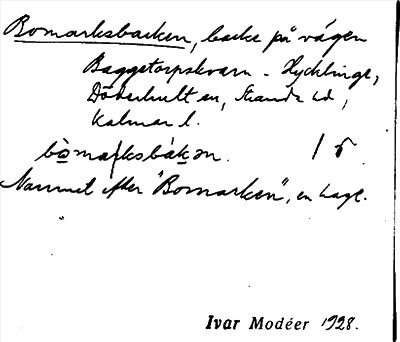 Bomarksbacken, backe på vägen
Baggetorpskvarn - Hycklinge,
Döderhult sn, Stranda hd,
Kalmar l.
bòmar̨ksbákən. 1 5
Namnet efter "Bomarken", en hage.
Ivar Modéer 1928.